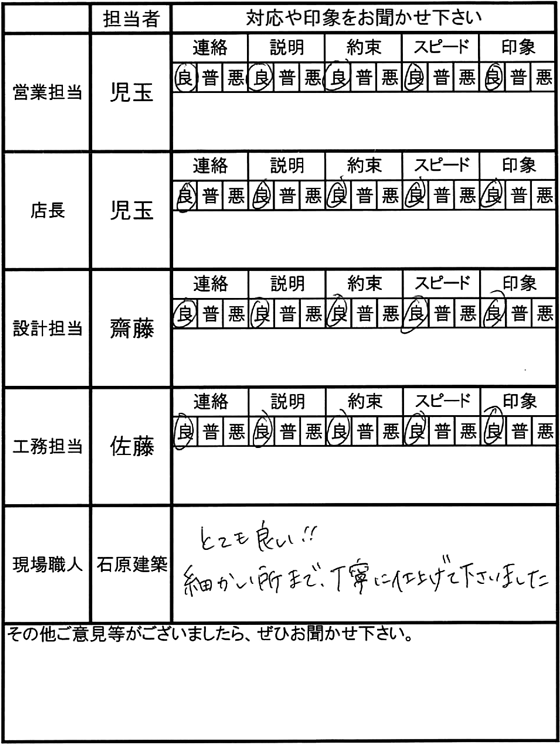 担当者 対応や印象をお聞かせ下さい
営業担当 児玉
連絡 説明 約束 スピード 印象
良 普 悪 良 普 悪 良 普 悪 良 普 悪 良 普 悪
店長 児玉
連絡 説明 約束 スピード 印象
良 普 悪 良 普 悪 良 普 悪 良 普 悪 良 普 悪
設計担当 齋藤
連絡 説明 約束 スピード 印象
良 普 悪 良 普 悪 良 普 悪 良 普 悪 良 普 悪
工務担当 佐藤
連絡 説明 約束 スピード 印象
良 普 悪 良 普 悪 良 普 悪 良 普 悪 良 普 悪
現場職人 石原建築
とても良い!!
細かい所まで、丁寧に仕上げて下さいました
その他ご意見等がございましたら、ぜひお聞かせ下さい。